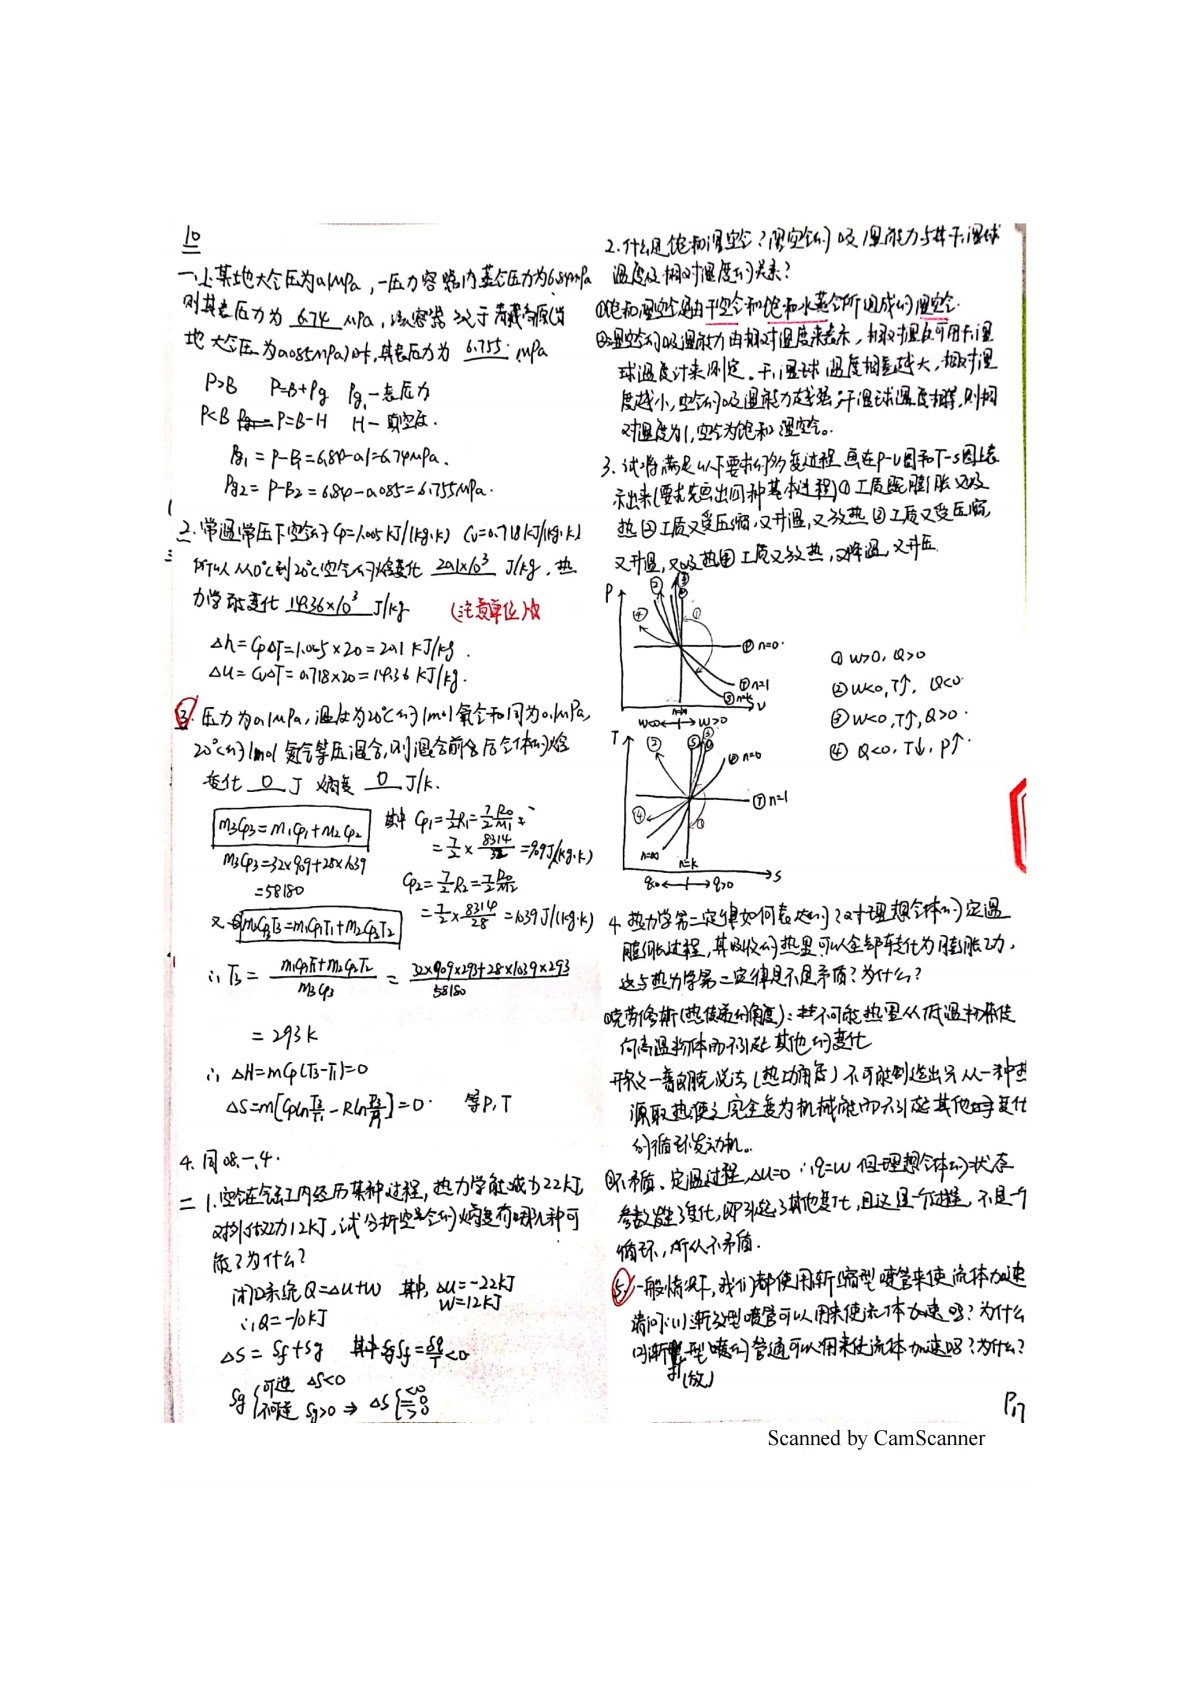 10
一、1. 某地大气压为0.1MPa，一压力容器内蒸气压力为6.84MPa
则其表压力为 6.74 MPa，该容器 于青藏高原(当
地大气压为0.085MPa)时，其表压力为 6.755 MPa
P>B P=B+Pg Pg—表压力
P<B P=B-H H—真空度.
Pg1=P-B1=6.84-0.1=6.74MPa.
Pg2=P-B2=6.84-0.085=6.755MPa.
二. 常温常压下空气 Cp=1.005KJ/(kg.k) Cv=0.718KJ/(kg.k)
所以从0℃到20℃空气的焓变化 20.1×10³ J/kg，热
力学能变化 14.36×10³ J/kg (注意单位)
Δh=CpΔT=1.005×20=20.1KJ/kg.
Δu=CvΔT=0.718×20=14.36KJ/kg.
3. 压力为0.1MPa，温度为20℃的1mol氧气和同为0.1MPa,
20℃的1mol氮气等压混合，则混合前后气体的焓
变化 0 J 熵变 0 J/k.
m3Cp3=m1Cp1+m2Cp2
其中 Cp1=7/2R1=7/2 R0/M1
=7/2×8314/32=909J/(kg.k)
m3Cp3=32×909+28×1039
=58180
Cp2=7/2R2=7/2 R0/M2
=7/2×8314/28=1039J/(kg.k)
又 m3Cp3T3=m1Cp1T1+m2Cp2T2
∴T3= m1Cp1T1+m2Cp2T2/m3Cp3 = 32×909×293+28×1039×293/58180
=293k
∴ΔH=mCp(T3-T1)=0
ΔS=m[Cpln T3/T1 - Rln P3/P1]=0. 等P,T
4. 同08.一.4.
二 1. 空气在气缸内经历某种过程，热力学能减少22KJ,
对外做功12KJ，试分析空气的熵变有哪几种可
能？为什么？
闭口系统Q=Δu+W 其中，Δu=-22KJ
W=12KJ
∴Q=-10KJ
ΔS=Sf+Sg 其中Sf=δQ/T<0
Sg { 可逆 ΔS<0
不可逆 Sg>0 ⇒ ΔS { <0
=0
>0
2. 什么是饱和湿空气？湿空气的吸湿能力与其干、湿球
温度及相对湿度的关系？
①饱和湿空气是由干空气和饱和水蒸气所组成的湿空气.
②湿空气的吸湿能力由相对湿度来表示，相对湿度可用干、湿
球温度计来测定。干、湿球温度相差越大，相对湿
度越小，空气的吸湿能力越强；干湿球温度相等，则相
对湿度为1，空气为饱和湿空气。
3. 试将满足以下要求的多变过程画在P-v图和T-s图上表
示出来(要求先画出四种基本过程)①工质既膨胀又吸
热②工质又受压缩，又升温，又放热③工质又受压缩,
又升温，又吸热④工质又放热，又降温，又升压
P
② ③
④ ①
n=0
n=1
n=k
n=∞
v
W<0 W>0
① W>0, Q>0
② W<0, T↑, Q<0
③ W<0, T↑, Q>0.
④ Q<0, T↓, P↑.
T
② ③
n=0
n=1
④ ①
n=∞ n=k
S
q<0 q>0
4. 热力学第二定律如何表达的？对理想气体的定温
膨胀过程，其吸收的热量可以全部转化为膨胀功,
这与热力学第二定律是不是矛盾？为什么？
①克劳修斯(热传递的角度)：不可能热量从低温物体传
向高温物体而不引起其他的变化
开尔文—普朗克说法(热功角度)不可能制造出只从一种热
源取热使之完全变为机械能而不引起其他变化
的循环发动机。
②不矛盾。定温过程，Δu=0 ∴q=w 但理想气体的状态
参数发生了变化，即引起了其他变化，且这是一个过程，不是一个
循环，所以不矛盾.
5. 一般情况下，我们都使用渐缩型喷管来使流体加速
请问：(1)渐缩型喷管可以用来使流体加速吗？为什么
(2)渐扩型喷的管道可以用来使流体加速吗？为什么？
(放)
P.17
Scanned by CamScanner